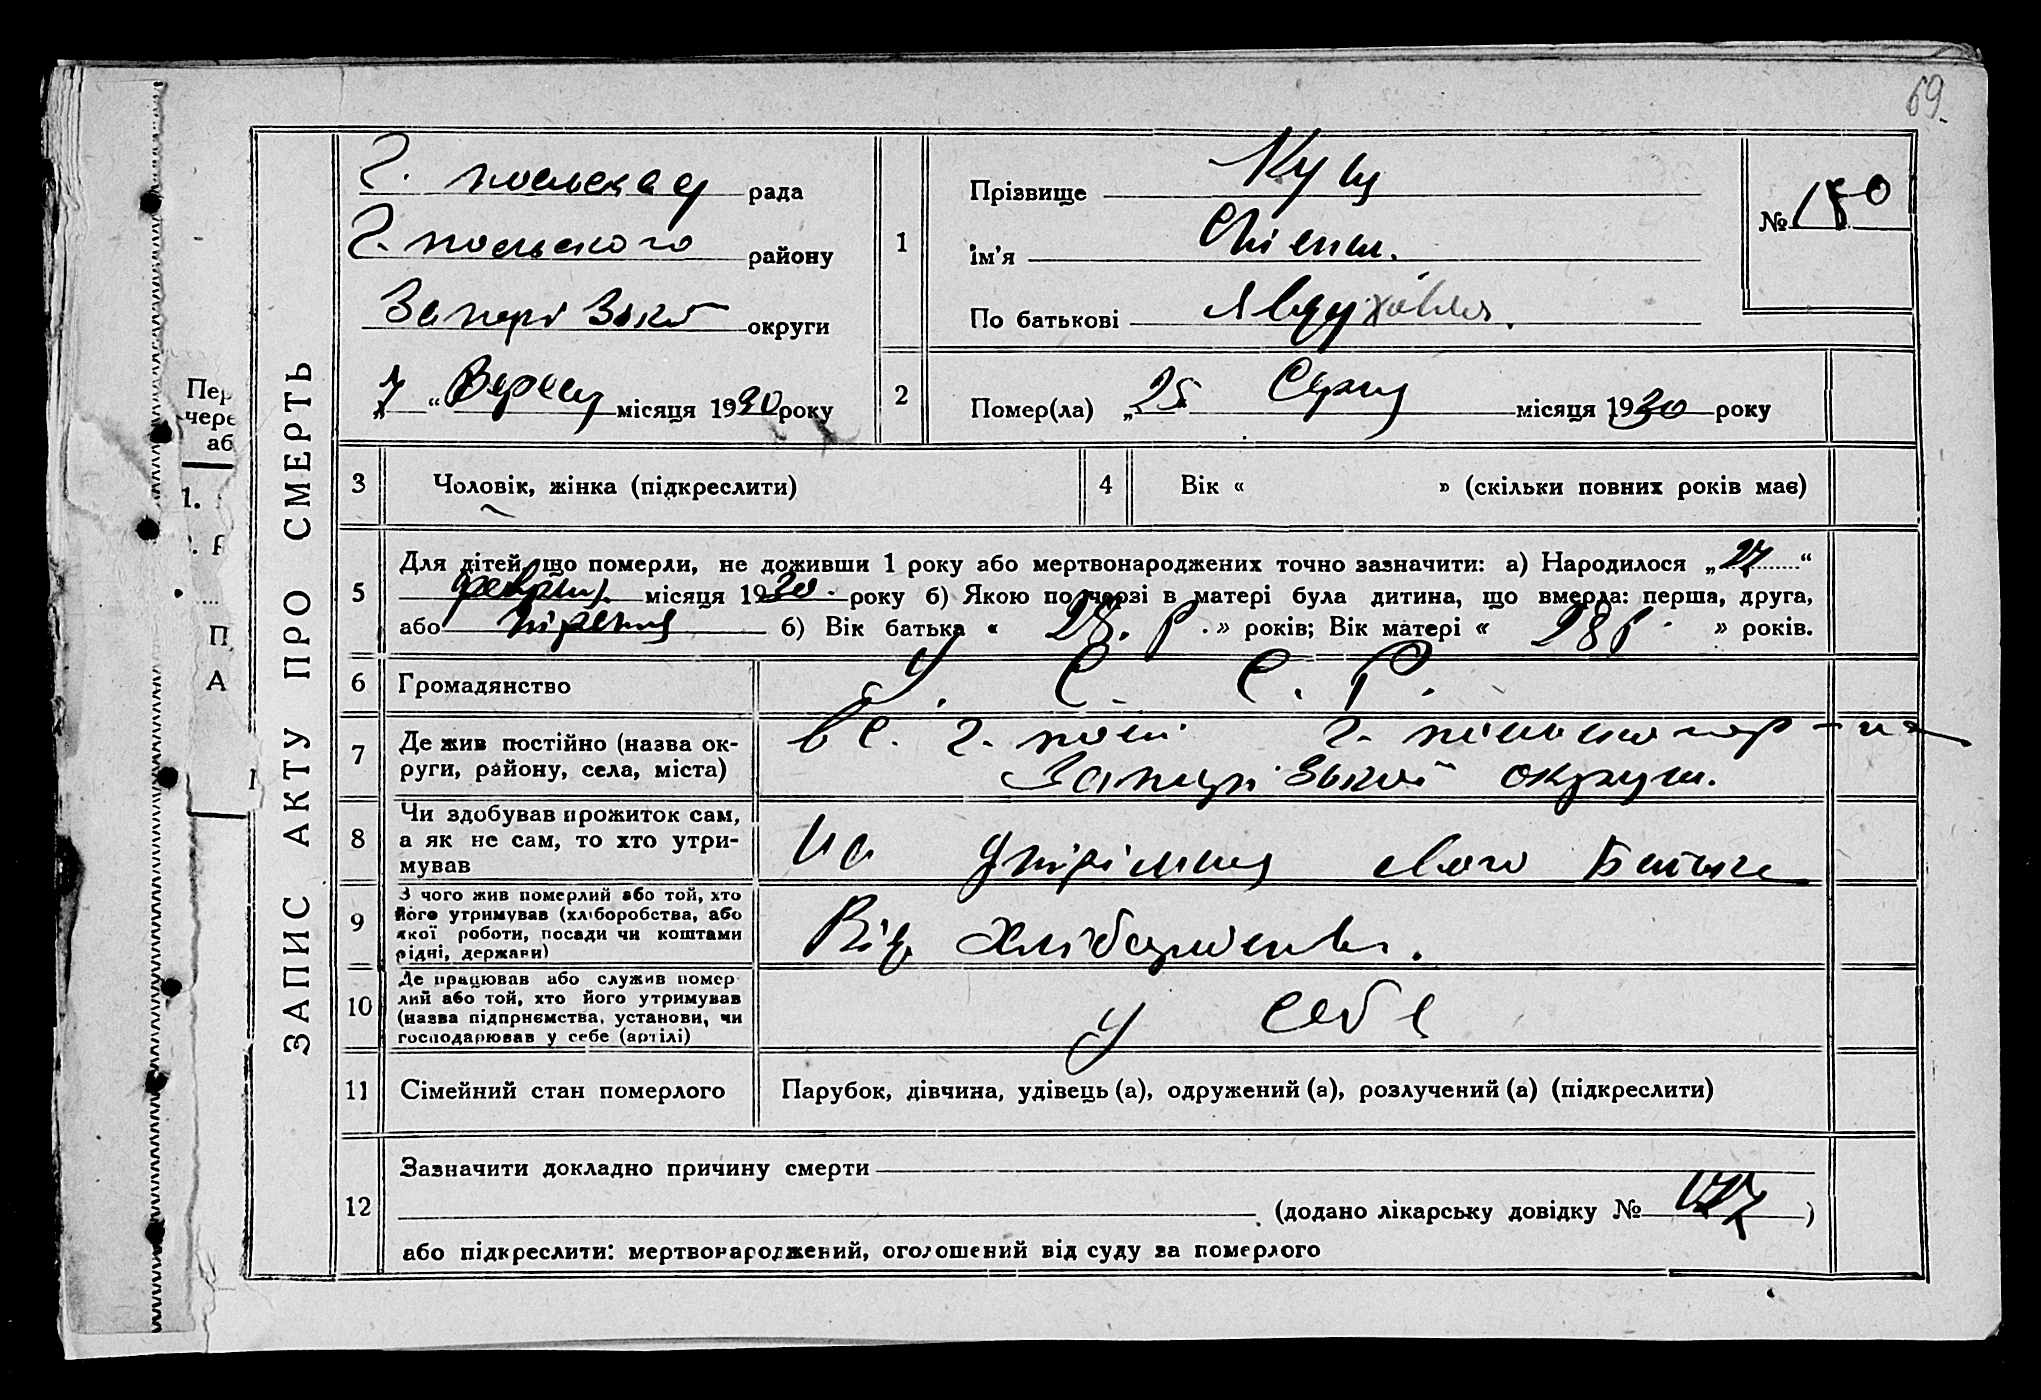 69.
ЗАПИС АКТУ ПРО СМЕРТЬ
Г. польська рада
Г. польського району
Запорізької округи
7 “ місяця 1930 року
1
Прізвище Куц
ім’я
По батькові
№ 150
2
Помер(ла) „25 Серпня місяця 1930 року
3 Чоловік, жінка (підкреслити)
4 Вік « » (скільки повних років має)
5 Для дітей, що померли, не доживши 1 року або мертвонароджених точно зазначити: а) Народилося „27“
місяця 1930 року б) Якою по черзі в матері була дитина, що вмерла: перша, друга,
або третя б) Вік батька « 28. р. » років; Вік матері « 28 р. » років.
6 Громадянство У. С. С. Р.
7 Де жив постійно (назва ок-
руги, району, села, міста)
в с. Г. полі Г. польського р-на
Запорізької округи.
8 Чи здобував прожиток сам,
а як не сам, то хто утри-
мував
На утріманні свого Батька
9 З чого жив померлий або той, хто
його утримував (хліборобства, або
якої роботи, посади чи коштами
рідні, держави)
Від Хліборобства.
10 Де працював або служив помер-
лий або той, хто його утримував
(назва підприємства, установи, чи
господарював у себе (артілі)
у себе
11 Сімейний стан померлого
Парубок, дівчина, удівець (а), одружений (а), розлучений (а) (підкреслити)
12 Зазначити докладно причину смерти
(додано лікарську довідку № 177)
або підкреслити: мертвонароджений, оголошений від суду за померлого
Пер
чере
аб
1.
П
А